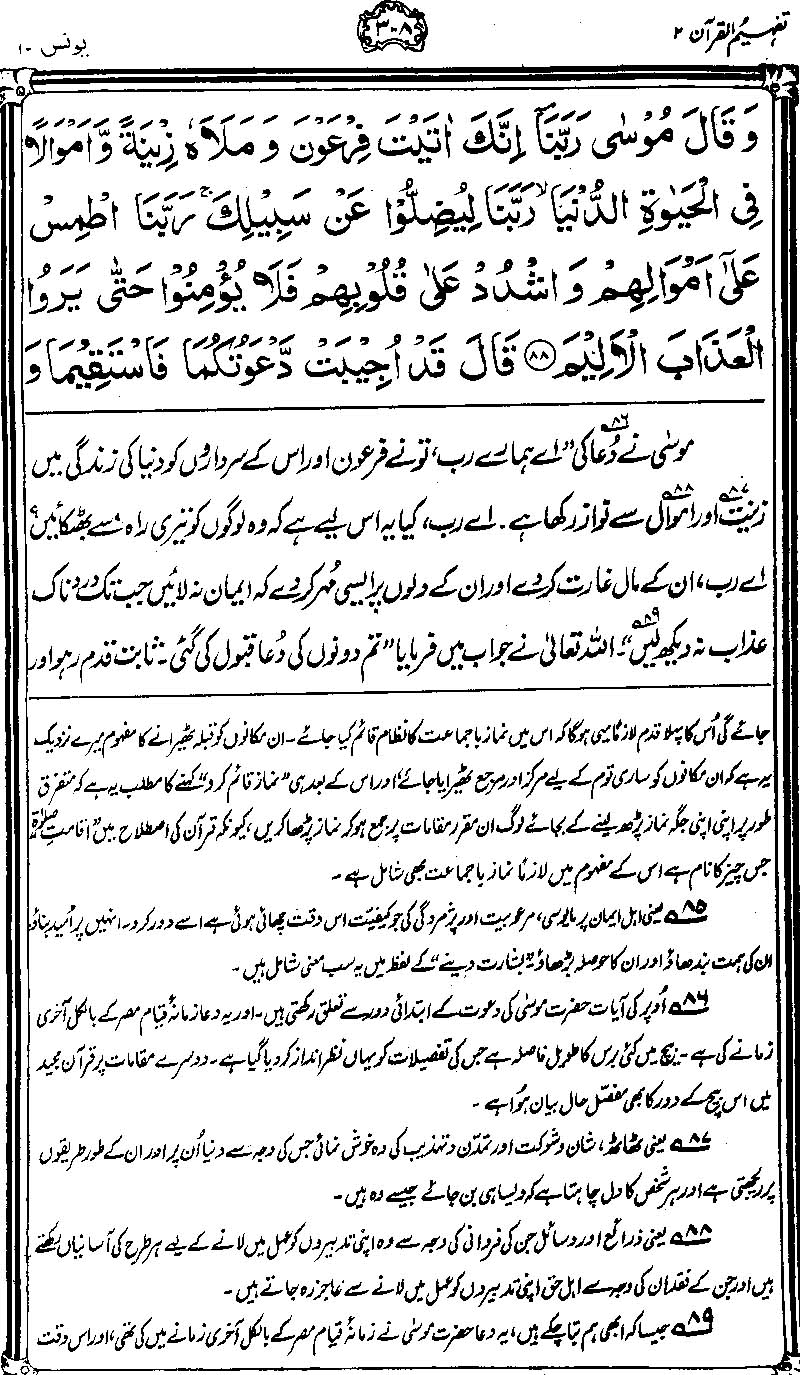 تفہیم القرآن ۲
۳۰۸
یونس ۱۰
وَقَالَ مُوْسٰى رَبَّنَاۤ اِنَّكَ اٰتَيْتَ فِرْعَوْنَ وَمَلَاَهٗ زِيْنَةً وَّاَمْوَالًا
فِى الْحَيٰوةِ الدُّنْيَا ۙ رَبَّنَا لِيُضِلُّوْا عَنْ سَبِيْلِكَ ۚ رَبَّنَا اطْمِسْ
عَلٰٓى اَمْوَالِهِمْ وَاشْدُدْ عَلٰى قُلُوْبِهِمْ فَلَا يُؤْمِنُوْا حَتّٰى يَرَوُا
الْعَذَابَ الْاَلِيْمَ ۝۸۸ قَالَ قَدْ اُجِيْبَتْ دَّعْوَتُكُمَا فَاسْتَقِيْمَا وَ
موسٰی نے ۸۶ دُعا کی ”اے ہمارے رب، تو نے فرعون اور اس کے سرداروں کو دنیا کی زندگی میں
زینت ۸۷ اور اموال ۸۸ سے نواز رکھا ہے۔ اے رب، کیا یہ اس لیے ہے کہ وہ لوگوں کو تیری راہ سے بھٹکائیں؟
اے رب، ان کے مال غارت کر دے اور ان کے دلوں پر ایسی مُہر کر دے کہ ایمان نہ لائیں جب تک دردناک
عذاب نہ دیکھ لیں ۸۹“۔ اللہ تعالیٰ نے جواب میں فرمایا ”تم دونوں کی دُعا قبول کی گئی۔ ثابت قدم رہو اور
جائے گی اُس کا پہلا قدم لازماً یہی ہوگا کہ اس میں نماز باجماعت کا نظام قائم کیا جائے۔ ان مکانوں کو قبلہ ٹھیرانے کا مفہوم میرے نزدیک
یہ ہے کہ ان مکانوں کو ساری قوم کے لیے مرکز اور مرجع ٹھیرایا جائے، اور اس کے بعد ہی ”نماز قائم کرو“ کہنے کا مطلب یہ ہے کہ متفرق
طور پر اپنی اپنی جگہ نماز پڑھ لینے کے بجائے لوگ ان مقرر مقامات پر جمع ہو کر نماز پڑھا کریں، کیونکہ قرآن کی اصطلاح میں ”اقامتِ صلوٰۃ“
جس چیز کا نام ہے اس کے مفہوم میں لازماً نماز باجماعت بھی شامل ہے۔
۸۵ یعنی اہل ایمان پر مایوسی، مرعوبیت اور پژمردگی کی جو کیفیت اس وقت چھائی ہوئی ہے اسے دور کرو۔ انہیں پر اُمید بناؤ
ان کی ہمت بندھاؤ اور ان کا حوصلہ بڑھاؤ۔ ”بشارت دینے“ کے لفظ میں یہ سب معنی شامل ہیں۔
۸۶ اُوپر کی آیات حضرت موسٰی کی دعوت کے ابتدائی دور سے تعلق رکھتی ہیں۔ اور یہ دعا زمانۂ قیام مصر کے بالکل آخری
زمانے کی ہے۔ بیچ میں کئی برس کا طویل فاصلہ ہے جس کی تفصیلات کو یہاں نظر انداز کر دیا گیا ہے۔ دوسرے مقامات پر قرآن مجید
میں اس بیچ کے دور کا بھی مفصّل حال بیان ہُوا ہے۔
۸۷ یعنی ٹھاٹھ، شان و شوکت اور تمدّن و تہذیب کی وہ خوش نمائی جس کی وجہ سے دنیا اُن پر اور ان کے طور طریقوں
پر ریجھتی ہے اور ہر شخص کا دل چاہتا ہے کہ ویسا ہی بن جائے جیسے وہ ہیں۔
۸۸ یعنی ذرائع اور وسائل جن کی فراوانی کی وجہ سے وہ اپنی تدبیروں کو عمل میں لانے کے لیے ہر طرح کی آسانیاں رکھتے
ہیں اور جن کے فقدان کی وجہ سے اہل حق اپنی تدبیروں کو عمل میں لانے سے عاجز رہ جاتے ہیں۔
۸۹ جیسا کہ ابھی ہم بتا چکے ہیں، یہ دعا حضرت موسٰی نے زمانۂ قیام مصر کے بالکل آخری زمانے میں کی تھی، اور اس وقت